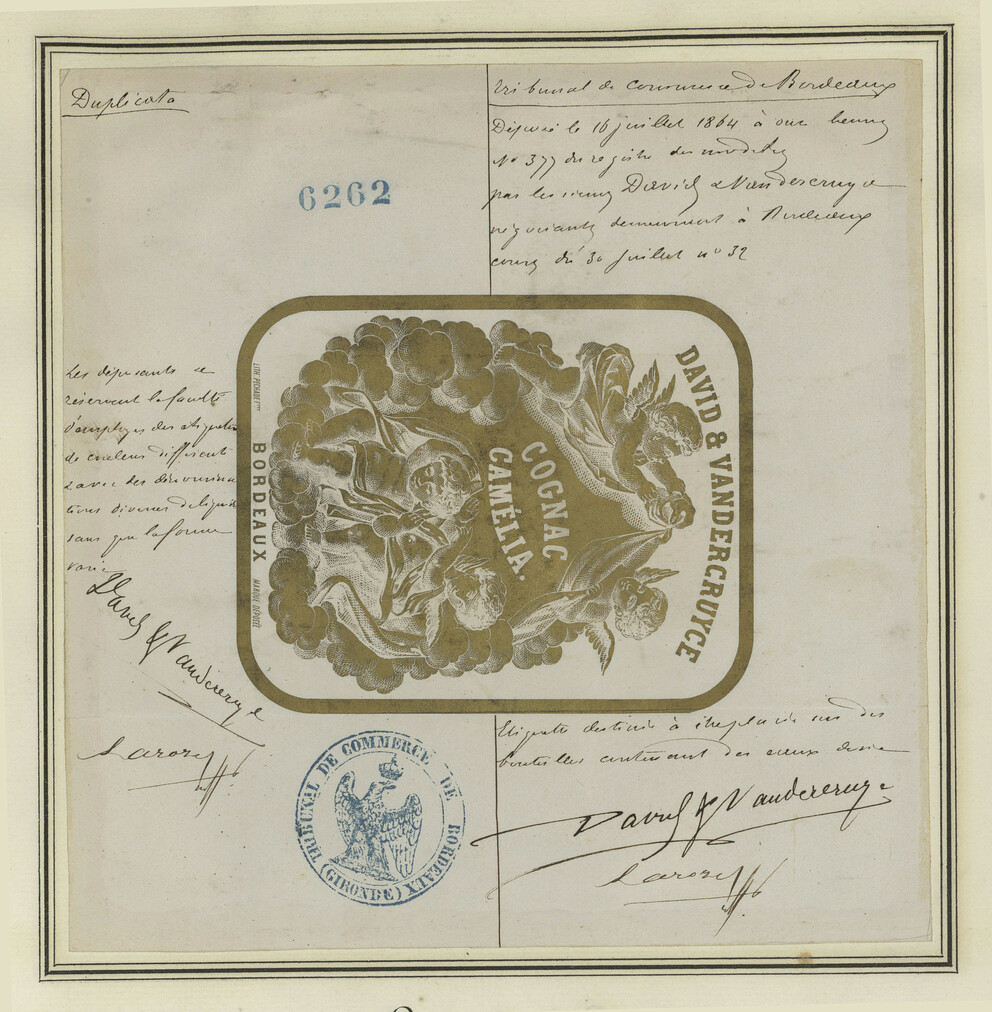 Duplicata
6262
Tribunal de commerce de Bordeaux
Déposé le 16 juillet 1864 à onze heures
No 377 du registre des modèles
par les sieurs David & Vandercruyce
négociants demeurant à Bordeaux
cours du 30 juillet no 32
DAVID & VANDERCRUYCE
COGNAC
CAMÉLIA.
BORDEAUX
MARQUE DÉPOSÉE
Les déposants se
réservent la faculté
d'employer des étiquettes
de couleurs différent
& avec des dénomina
tions diverses de liquide
sans que la forme
varie
David & Vandercruyce
Larose
Etiquette destinée à être placée sur des
bouteilles contenant des eaux de vie
David & Vandercruyce
Larose
TRIBUNAL DE COMMERCE DE BORDEAUX
(GIRONDE)